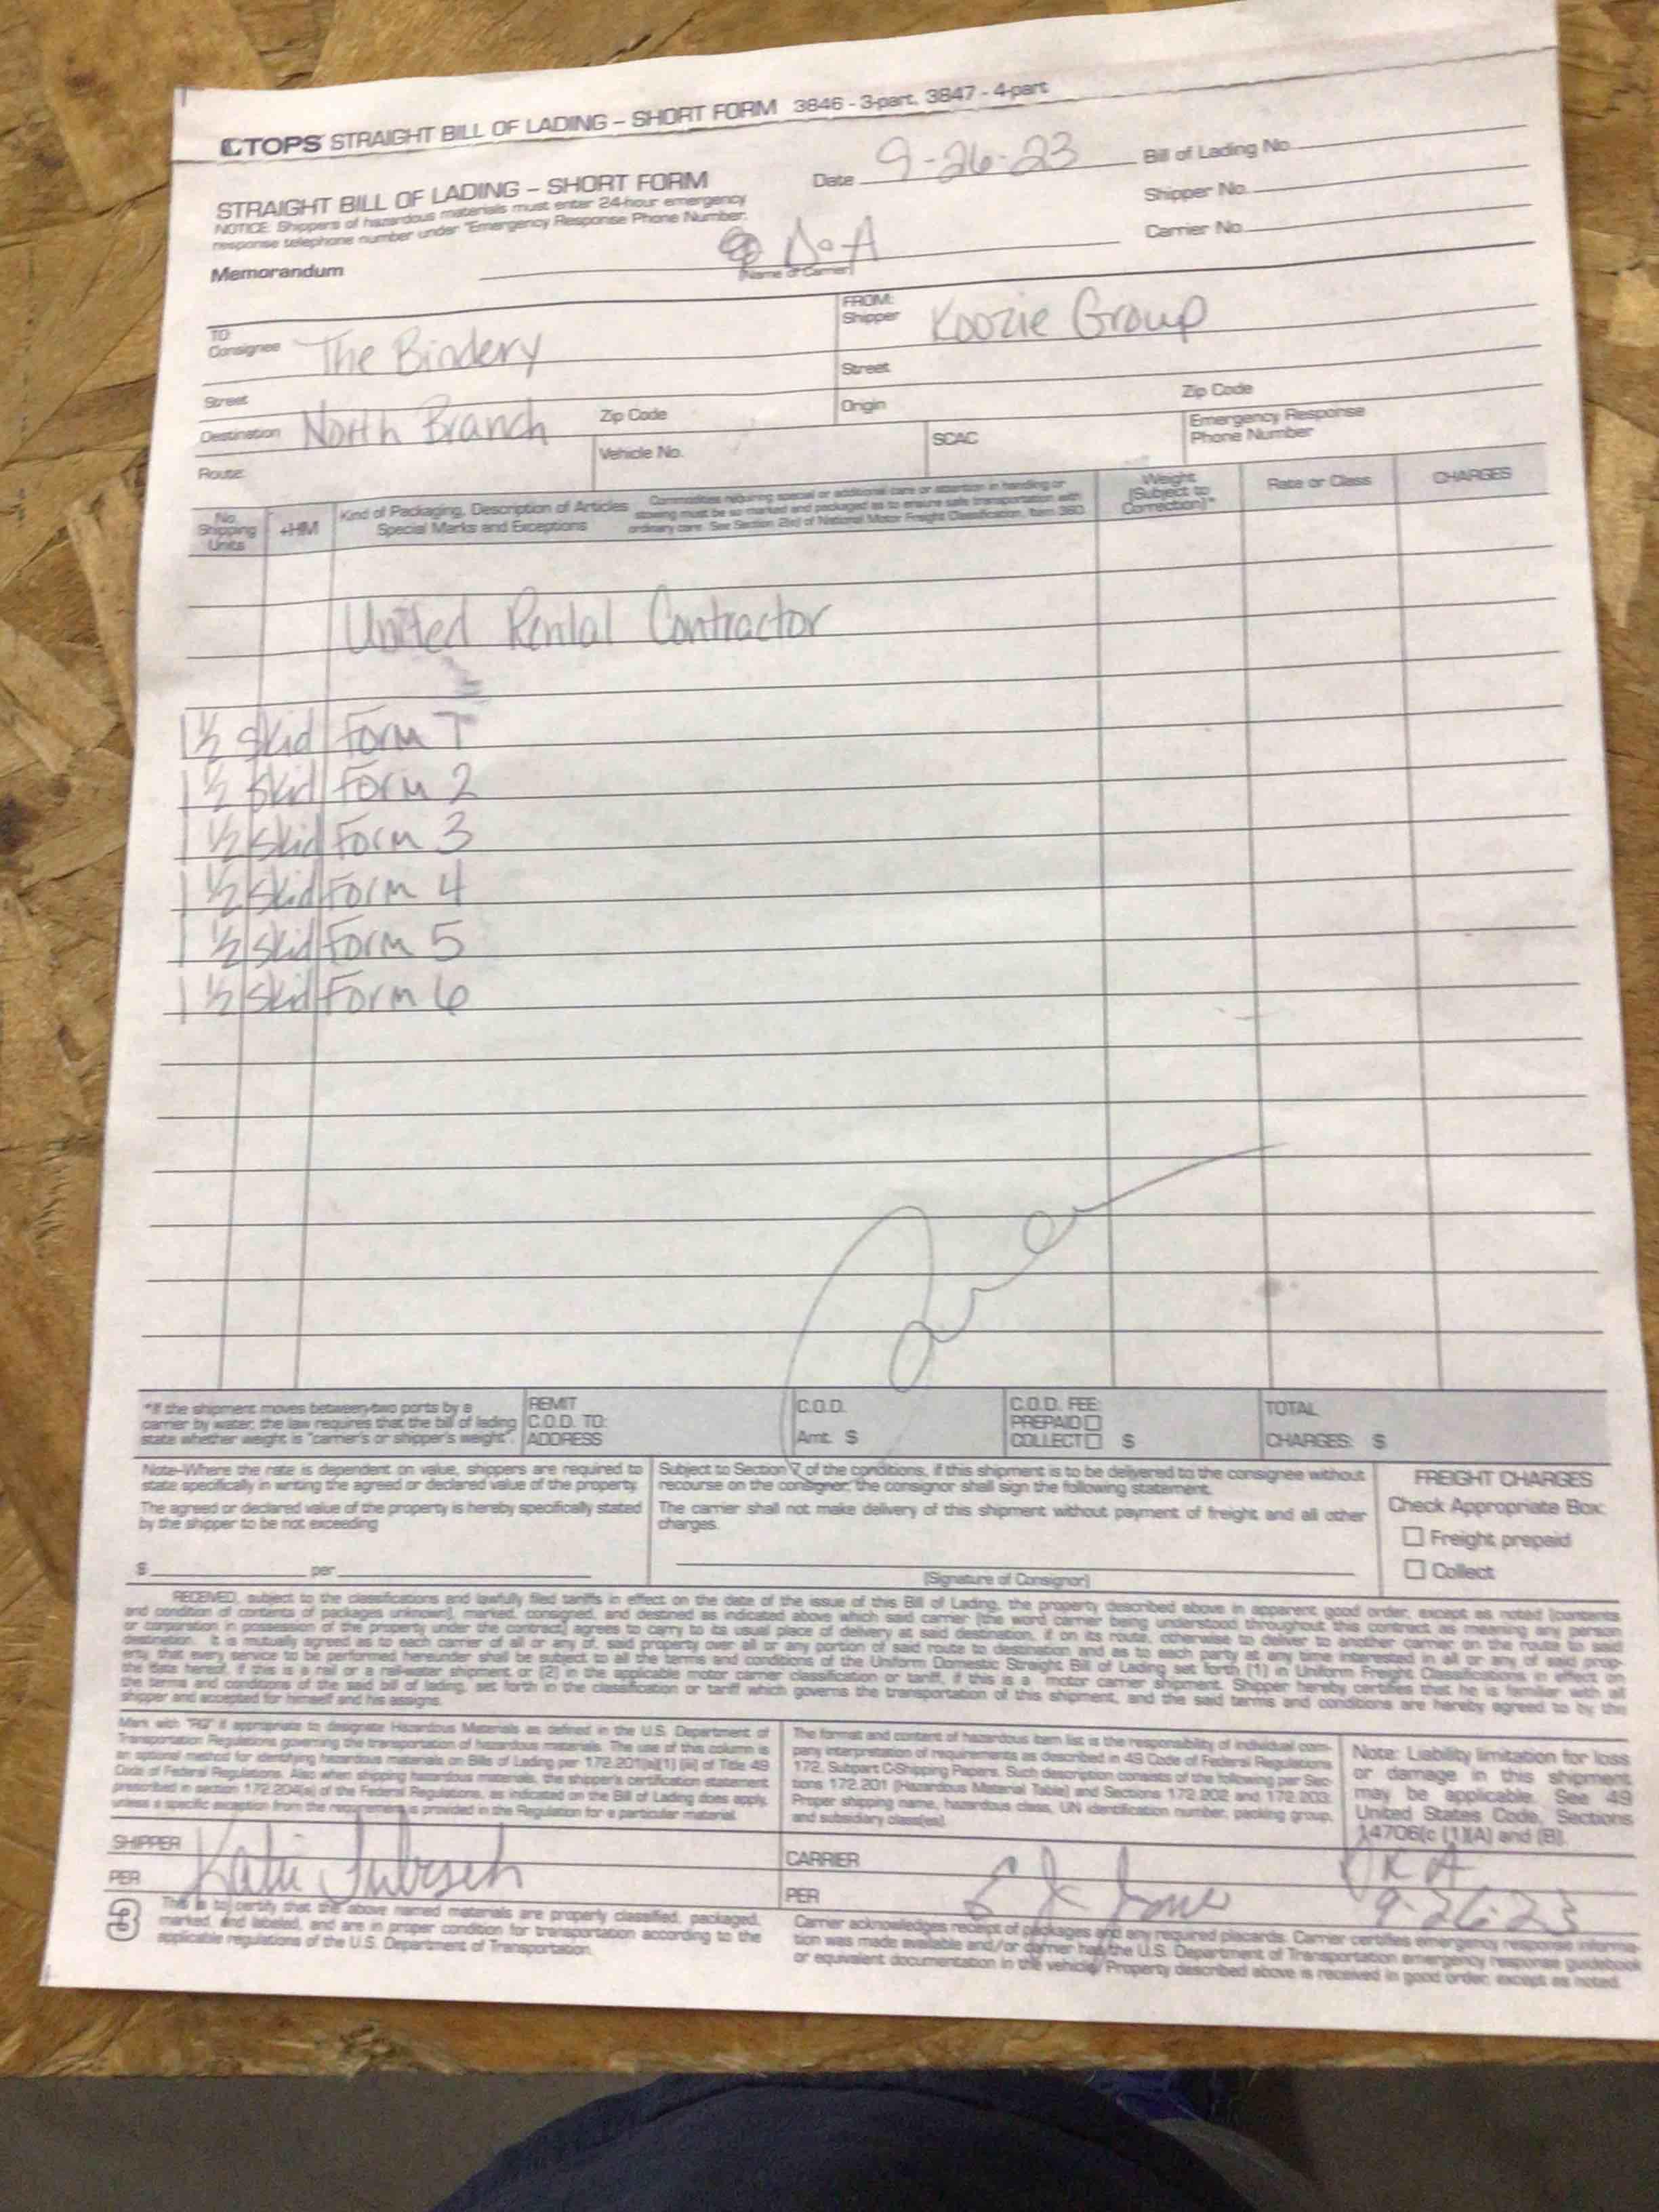 TOPS STRAIGHT BILL OF LADING – SHORT FORM 3846 - 3-part, 3847 - 4-part
STRAIGHT BILL OF LADING – SHORT FORM
NOTICE: Shippers of hazardous materials must enter 24-hour emergency
response telephone number under "Emergency Response Phone Number."
Date 9-26-23
Bill of Lading No.
Shipper No.
Carrier No.
Memorandum
(Name of Carrier)
TO:
Consignee The Bindery
FROM:
Shipper Koozie Group
Street
Street
Destination North Branch Zip Code
Origin Zip Code
Route:
Vehicle No.
SCAC
Emergency Response
Phone Number
No.
Shipping
Units
+HM
Kind of Packaging, Description of Articles
Special Marks and Exceptions
Commodities requiring special or additional care or attention in handling or
stowing must be so marked and packaged as to ensure safe transportation with
ordinary care. See Section 2(e) of National Motor Freight Classification, Item 360
Weight
(Subject to
Correction)*
Rate or Class
CHARGES
United Rental Contractor
1 1/2 skid Form 1
1 1/2 skid Form 2
1 1/2 skid Form 3
1 1/2 skid Form 4
1 1/2 skid Form 5
1 1/2 skid Form 6
*If the shipment moves between two ports by a
carrier by water, the law requires that the bill of lading
state whether weight is "carrier's or shipper's weight".
REMIT
C.O.D. TO:
ADDRESS
C.O.D.
Amt. $
C.O.D. FEE:
PREPAID
COLLECT $
TOTAL
CHARGES: $
Note–Where the rate is dependent on value, shippers are required to
state specifically in writing the agreed or declared value of the property.
The agreed or declared value of the property is hereby specifically stated
by the shipper to be not exceeding
$ per
Subject to Section 7 of the conditions, if this shipment is to be delivered to the consignee without
recourse on the consigner, the consignor shall sign the following statement.
The carrier shall not make delivery of this shipment without payment of freight and all other
charges.
(Signature of Consignor)
FREIGHT CHARGES
Check Appropriate Box:
Freight prepaid
Collect
RECEIVED, subject to the classifications and lawfully filed tariffs in effect on the date of the issue of this Bill of Lading, the property described above in apparent good order, except as noted (contents
and condition of contents of packages unknown), marked, consigned, and destined as indicated above which said carrier (the word carrier being understood throughout this contract as meaning any person
or corporation in possession of the property under the contract) agrees to carry to its usual place of delivery at said destination, if on its route, otherwise to deliver to another carrier on the route to said
destination. It is mutually agreed as to each carrier of all or any of, said property over all or any portion of said route to destination and as to each party at any time interested in all or any of said prop-
erty that every service to be performed hereunder shall be subject to all the terms and conditions of the Uniform Domestic Straight Bill of Lading set forth (1) in Uniform Freight Classifications in effect on
the date hereof, if this is a rail or a rail-water shipment or (2) in the applicable motor carrier classification or tariff, if this is a motor carrier shipment. Shipper hereby certifies that he is familiar with all
the terms and conditions of the said bill of lading, set forth in the classification or tariff which governs the transportation of this shipment, and the said terms and conditions are hereby agreed to by the
shipper and accepted for himself and his assigns.
Mark with "RQ" if appropriate to designate Hazardous Materials as defined in the U.S. Department of
Transportation Regulations governing the transportation of hazardous materials. The use of this column is
an optional method for identifying hazardous materials on Bills of Lading per 172.201(a)(1) (iii) of Title 49
Code of Federal Regulations. Also when shipping hazardous materials, the shipper's certification statement
prescribed in section 172.204(a) of the Federal Regulations, as indicated on the Bill of Lading does apply,
unless a specific exception from the requirement is provided in the Regulation for a particular material.
The format and content of hazardous item list is the responsibility of individual com-
pany interpretation of requirements as described in 49 Code of Federal Regulations
172, Subpart C-Shipping Papers. Such description consists of the following per Sec-
tions 172.201 (Hazardous Material Table) and Sections 172.202 and 172.203:
Proper shipping name, hazardous class, UN identification number, packing group,
and subsidiary class(es).
Note: Liability limitation for loss
or damage in this shipment
may be applicable. See 49
United States Code, Sections
14706(c)(1)(A) and (B).
SHIPPER
PER Katie
CARRIER
PER
9-26-23
3
This is to certify that the above named materials are properly classified, packaged,
marked, and labeled, and are in proper condition for transportation according to the
applicable regulations of the U.S. Department of Transportation.
Carrier acknowledges receipt of packages and any required placards. Carrier certifies emergency response informa-
tion was made available and/or carrier has the U.S. Department of Transportation emergency response guidebook
or equivalent documentation in the vehicle. Property described above is received in good order, except as noted.